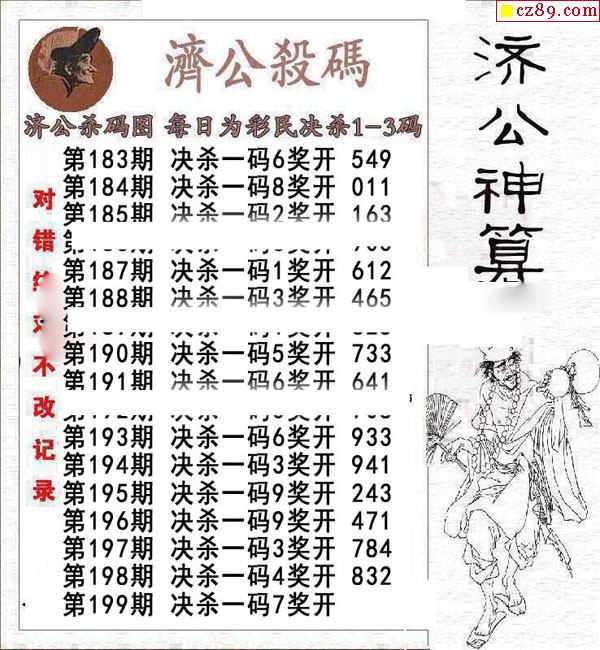 cz89.com
濟公殺碼
济公杀码图 每日为彩民决杀1-3码
第183期 决杀一码6奖开 549
第184期 决杀一码8奖开 011
第185期 决杀一码2奖开 163
第187期 决杀一码1奖开 612
第188期 决杀一码3奖开 465
第190期 决杀一码5奖开 733
第191期 决杀一码6奖开 641
第193期 决杀一码6奖开 933
第194期 决杀一码3奖开 941
第195期 决杀一码9奖开 243
第196期 决杀一码9奖开 471
第197期 决杀一码3奖开 784
第198期 决杀一码4奖开 832
第199期 决杀一码7奖开
对错
不改记录
济公神算